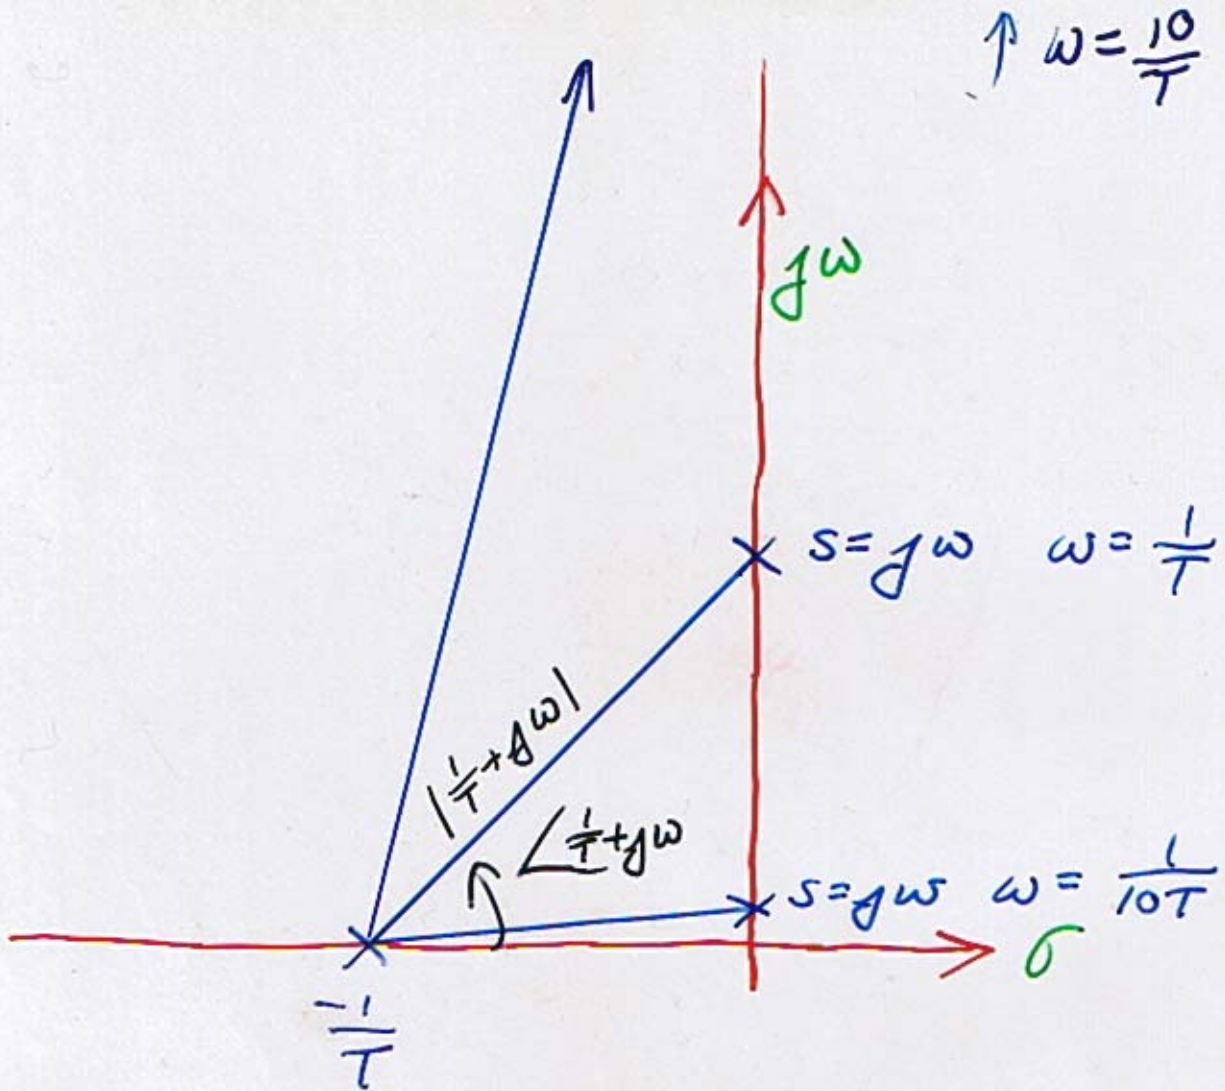 ↑ ω = 10/T
jω
s = jω ω = 1/T
|1/T + jω|
∠ 1/T + jω
s = jω ω = 1/10T
σ
-1/T